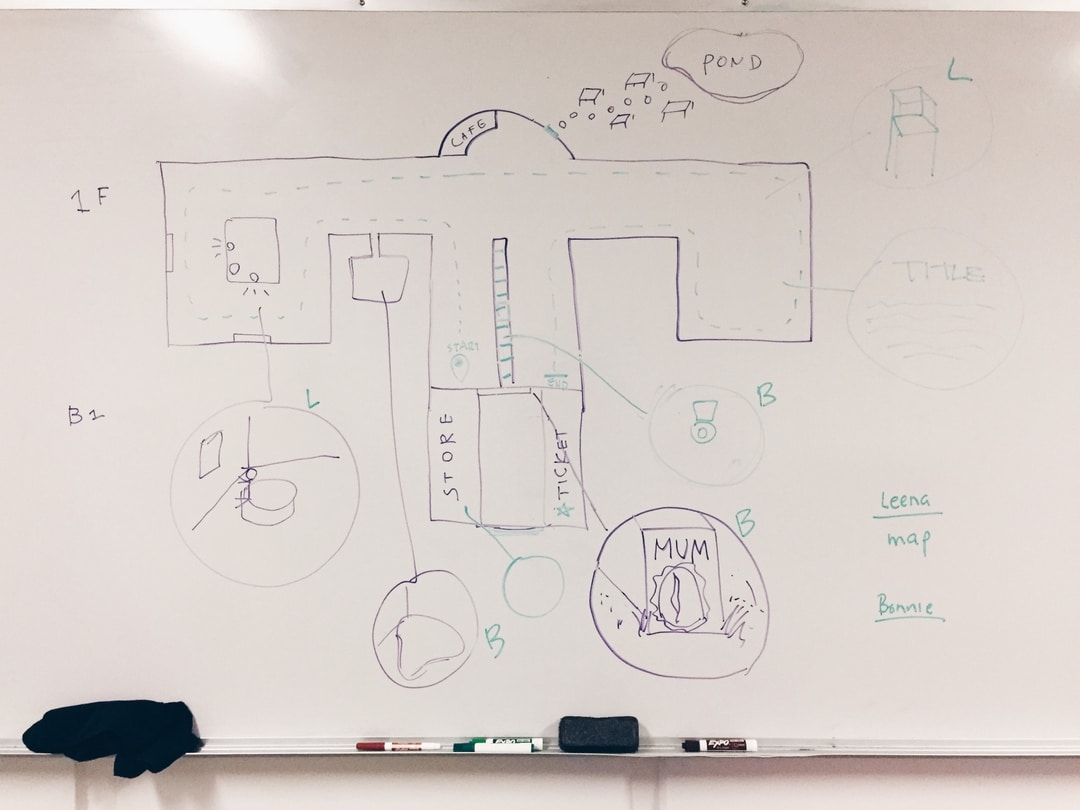 POND
L
CAFE
1F
TITLE
START
END
B1
L
B
STORE
TICKET
MUM
B
B
Leena
map
Bonnie
EXPO
EXPO